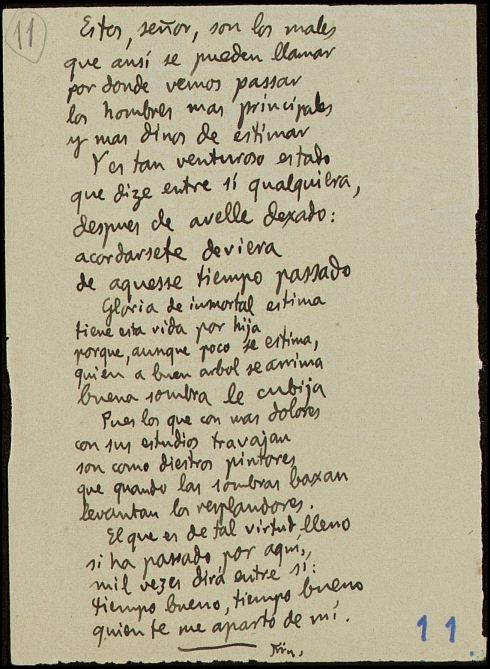 11
Estos, señor, son los males
que ansí se pueden llamar
por donde vemos passar
los hombres mas principales
y mas dinos de estimar
Y es tan venturoso estado
que dize entre sí qualquiera,
despues de avelle dexado:
acordarsete deviera
de aquesse tiempo passado
Gloria de inmortal estima
tiene esta vida por hija
porque, aunque poco se estima,
quien a buen arbol se arrima
buena sombra le cubija
Pues los que con mas dolores
con sus estudios travajan
son como diestros pintores
que quando las sombras baxan
levantan los resplandores.
El que es de tal virtud lleno
si ha passado por aquí,
mil vezes dirá entre sí:
tiempo bueno, tiempo bueno
quien te me apartó de mí.
Fin.
11